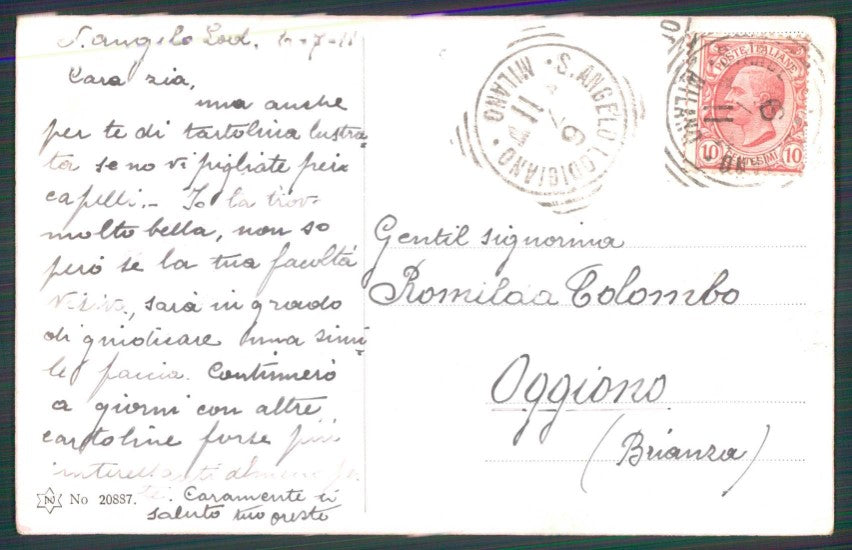 S. Angelo Lod, 6-7-11
Cara zia,
una anche
per te di cartolina lustra-
ta se no vi pigliate pei
capelli. - Io la trov-
molto bella, non so
però se la tua facoltà
visiva, sarà in grado
di giudicare una simi-
le faccia. Continuerò
a giorni con altre
cartoline forse più
interessanti almeno per
te. Caramente ti
saluto tuo Oreste
No 20887.
S. ANGELO LODIGIANO
MILANO
6 7 11
POSTE ITALIANE
10 CENTESIMI 10
Gentil signorina
Romilda Colombo
Oggiono
(Brianza)